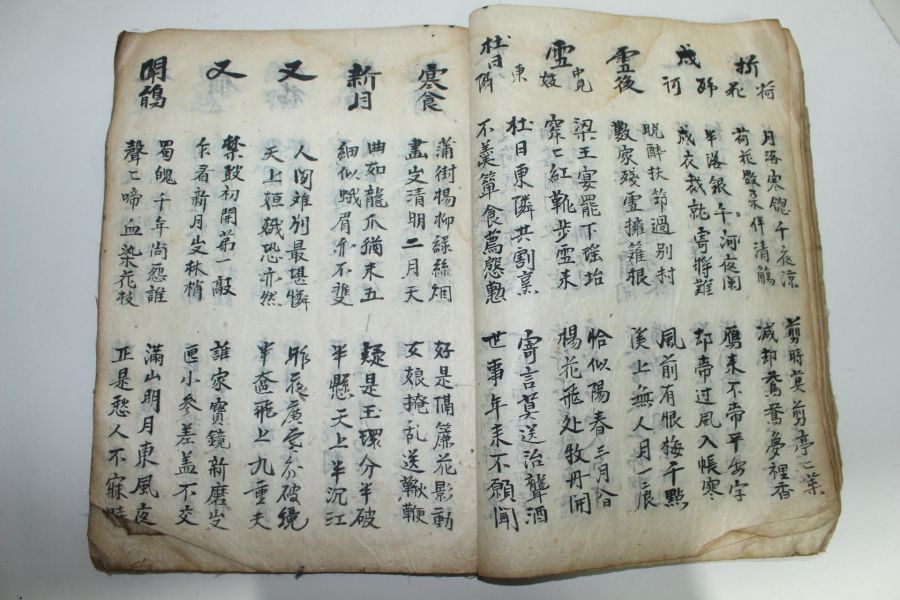 折荷花
月落寒 夜涼
荷花數朵伴清觴
剪時莫剪亭〻葉
減却鴛鴦夢裡香
戍
半落銀千河夜闌
戍衣裁就寄將難
鴈来不帶平安字
却帶过風入帳寒
雪後
晩醉扶筇過別村
數家殘雪擁籬根
風前有恨梅千點
溪上無人月一痕
雪中見妓
梁王宴罷下瑤坮
窄〻紅靴步雪来
恰似陽春三月合
楊花飛处牧丹開
社日東隣
社日東隣共割烹
不羹簞食薦慇懃
寄言莫送治聾酒
世事年来不願聞
寒食
蒲街楊柳綠絲烟
畵出清明二月天
好是隔簾花影動
女娘掩乱送鞦韆
新月
曲如龍爪猶未五
細似蛾眉亦不雙
疑是玉環分半破
半懸天上半沉江
又
人间难別最堪憐
天上姮娥恐亦然
昨夜廣雲分破鏡
半奩飛上九重天
又
禁鼓初開第一敲
乍看新月出林梢
誰家寶鏡新磨出
匣小參差盖不交
聞鵑
蜀魄千年尚怨誰
聲〻啼血染花枝
滿山明月東風夜
正是愁人不寐時